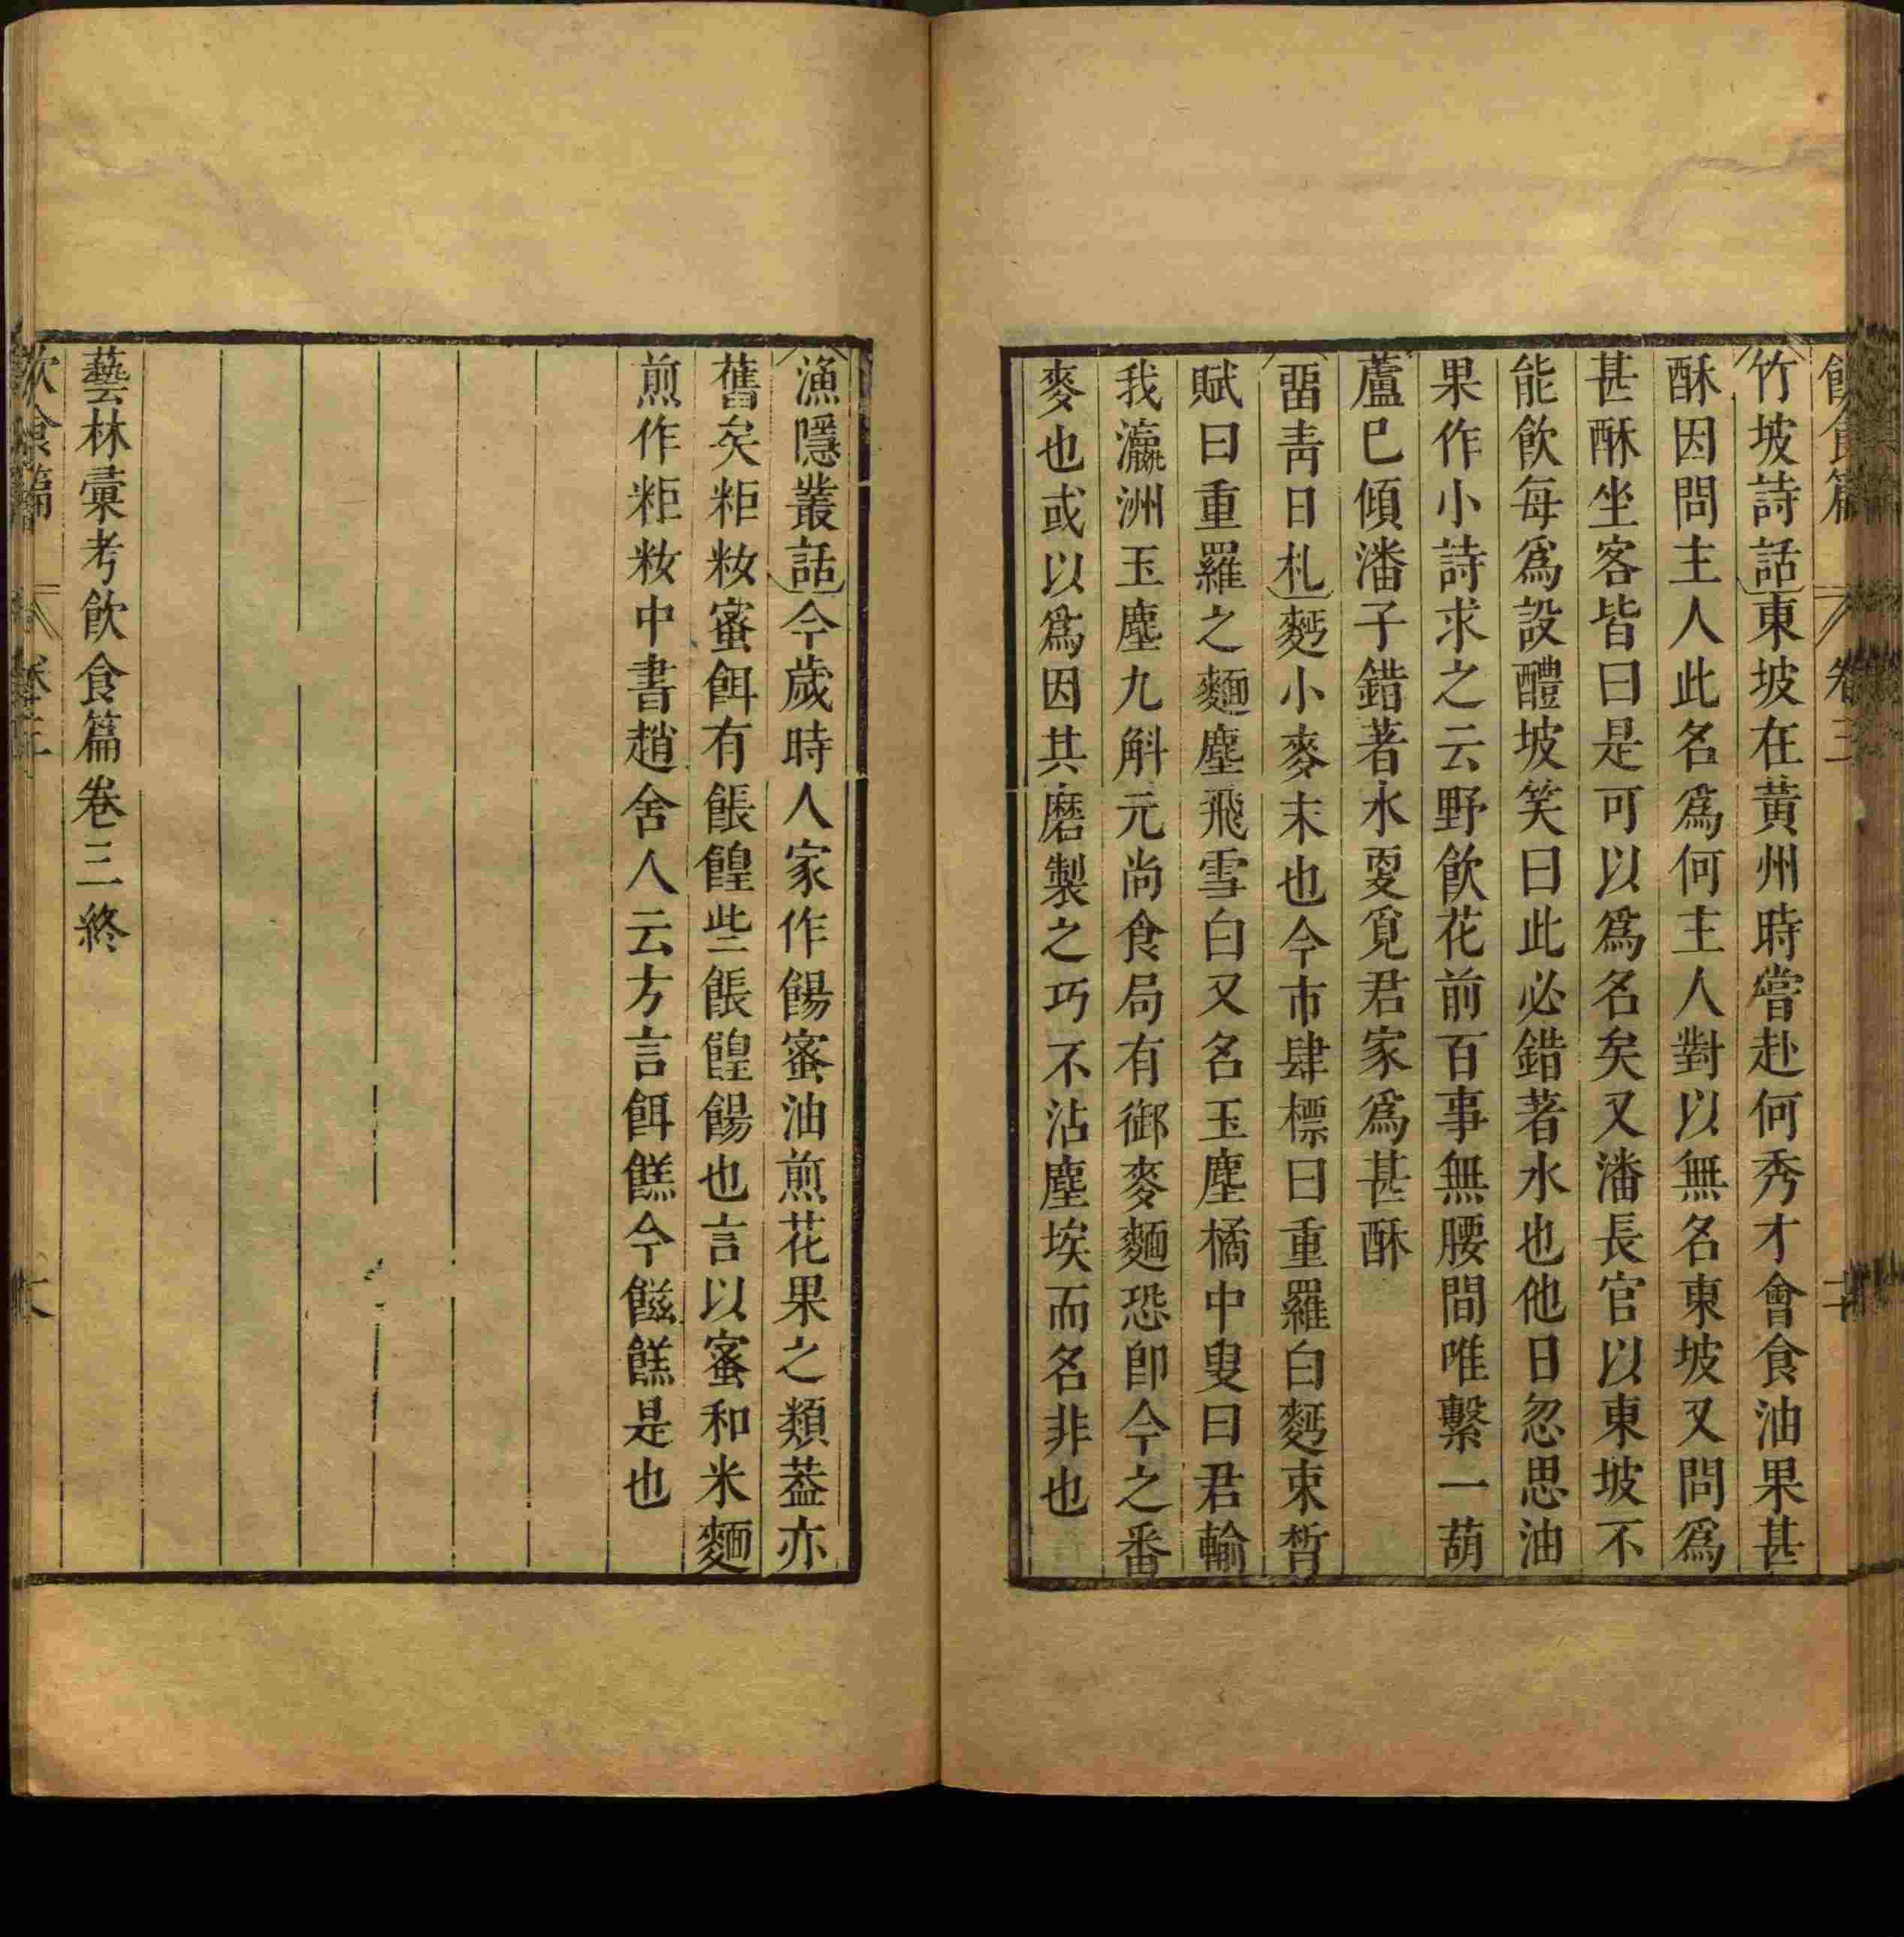 飲食篇 卷三
竹坡詩話東坡在黃州時嘗赴何秀才會食油果甚
酥因問主人此名爲何主人對以無名東坡又問爲
甚酥坐客皆曰是可以爲名矣又潘長官以東坡不
能飲每爲設醴坡笑曰此必錯著水也他日忽思油
果作小詩求之云野飲花前百事無腰間唯繫一葫
蘆已傾潘子錯著水更覓君家爲甚酥
留青日札麪小麥末也今市肆標曰重羅白麪束晳
賦曰重羅之麵塵飛雪白又名玉塵橘中叟曰君輸
我瀛洲玉塵九斛元尚食局有御麥麵恐卽今之番
麥也或以爲因其磨製之巧不沾塵埃而名非也
漁隱叢話今歲時人家作餳蜜油煎花果之類葢亦
舊矣粔籹蜜餌有餦餭些餦餭餳也言以蜜和米麵
煎作粔籹中書趙舍人云方言餌餻今餈餻是也
藝林彙考飲食篇卷三終
飲食篇 卷三